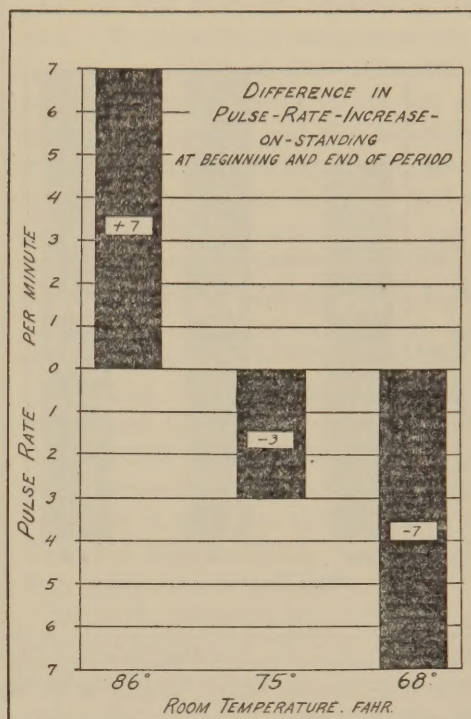 DIFFERENCE IN
PULSE-RATE-INCREASE-
ON-STANDING
AT BEGINNING AND END OF PERIOD
PULSE RATE PER MINUTE
7
6
5
4
3
2
1
0
1
2
3
4
5
6
7
+7
-3
-7
86° 75° 68°
ROOM TEMPERATURE. FAHR.